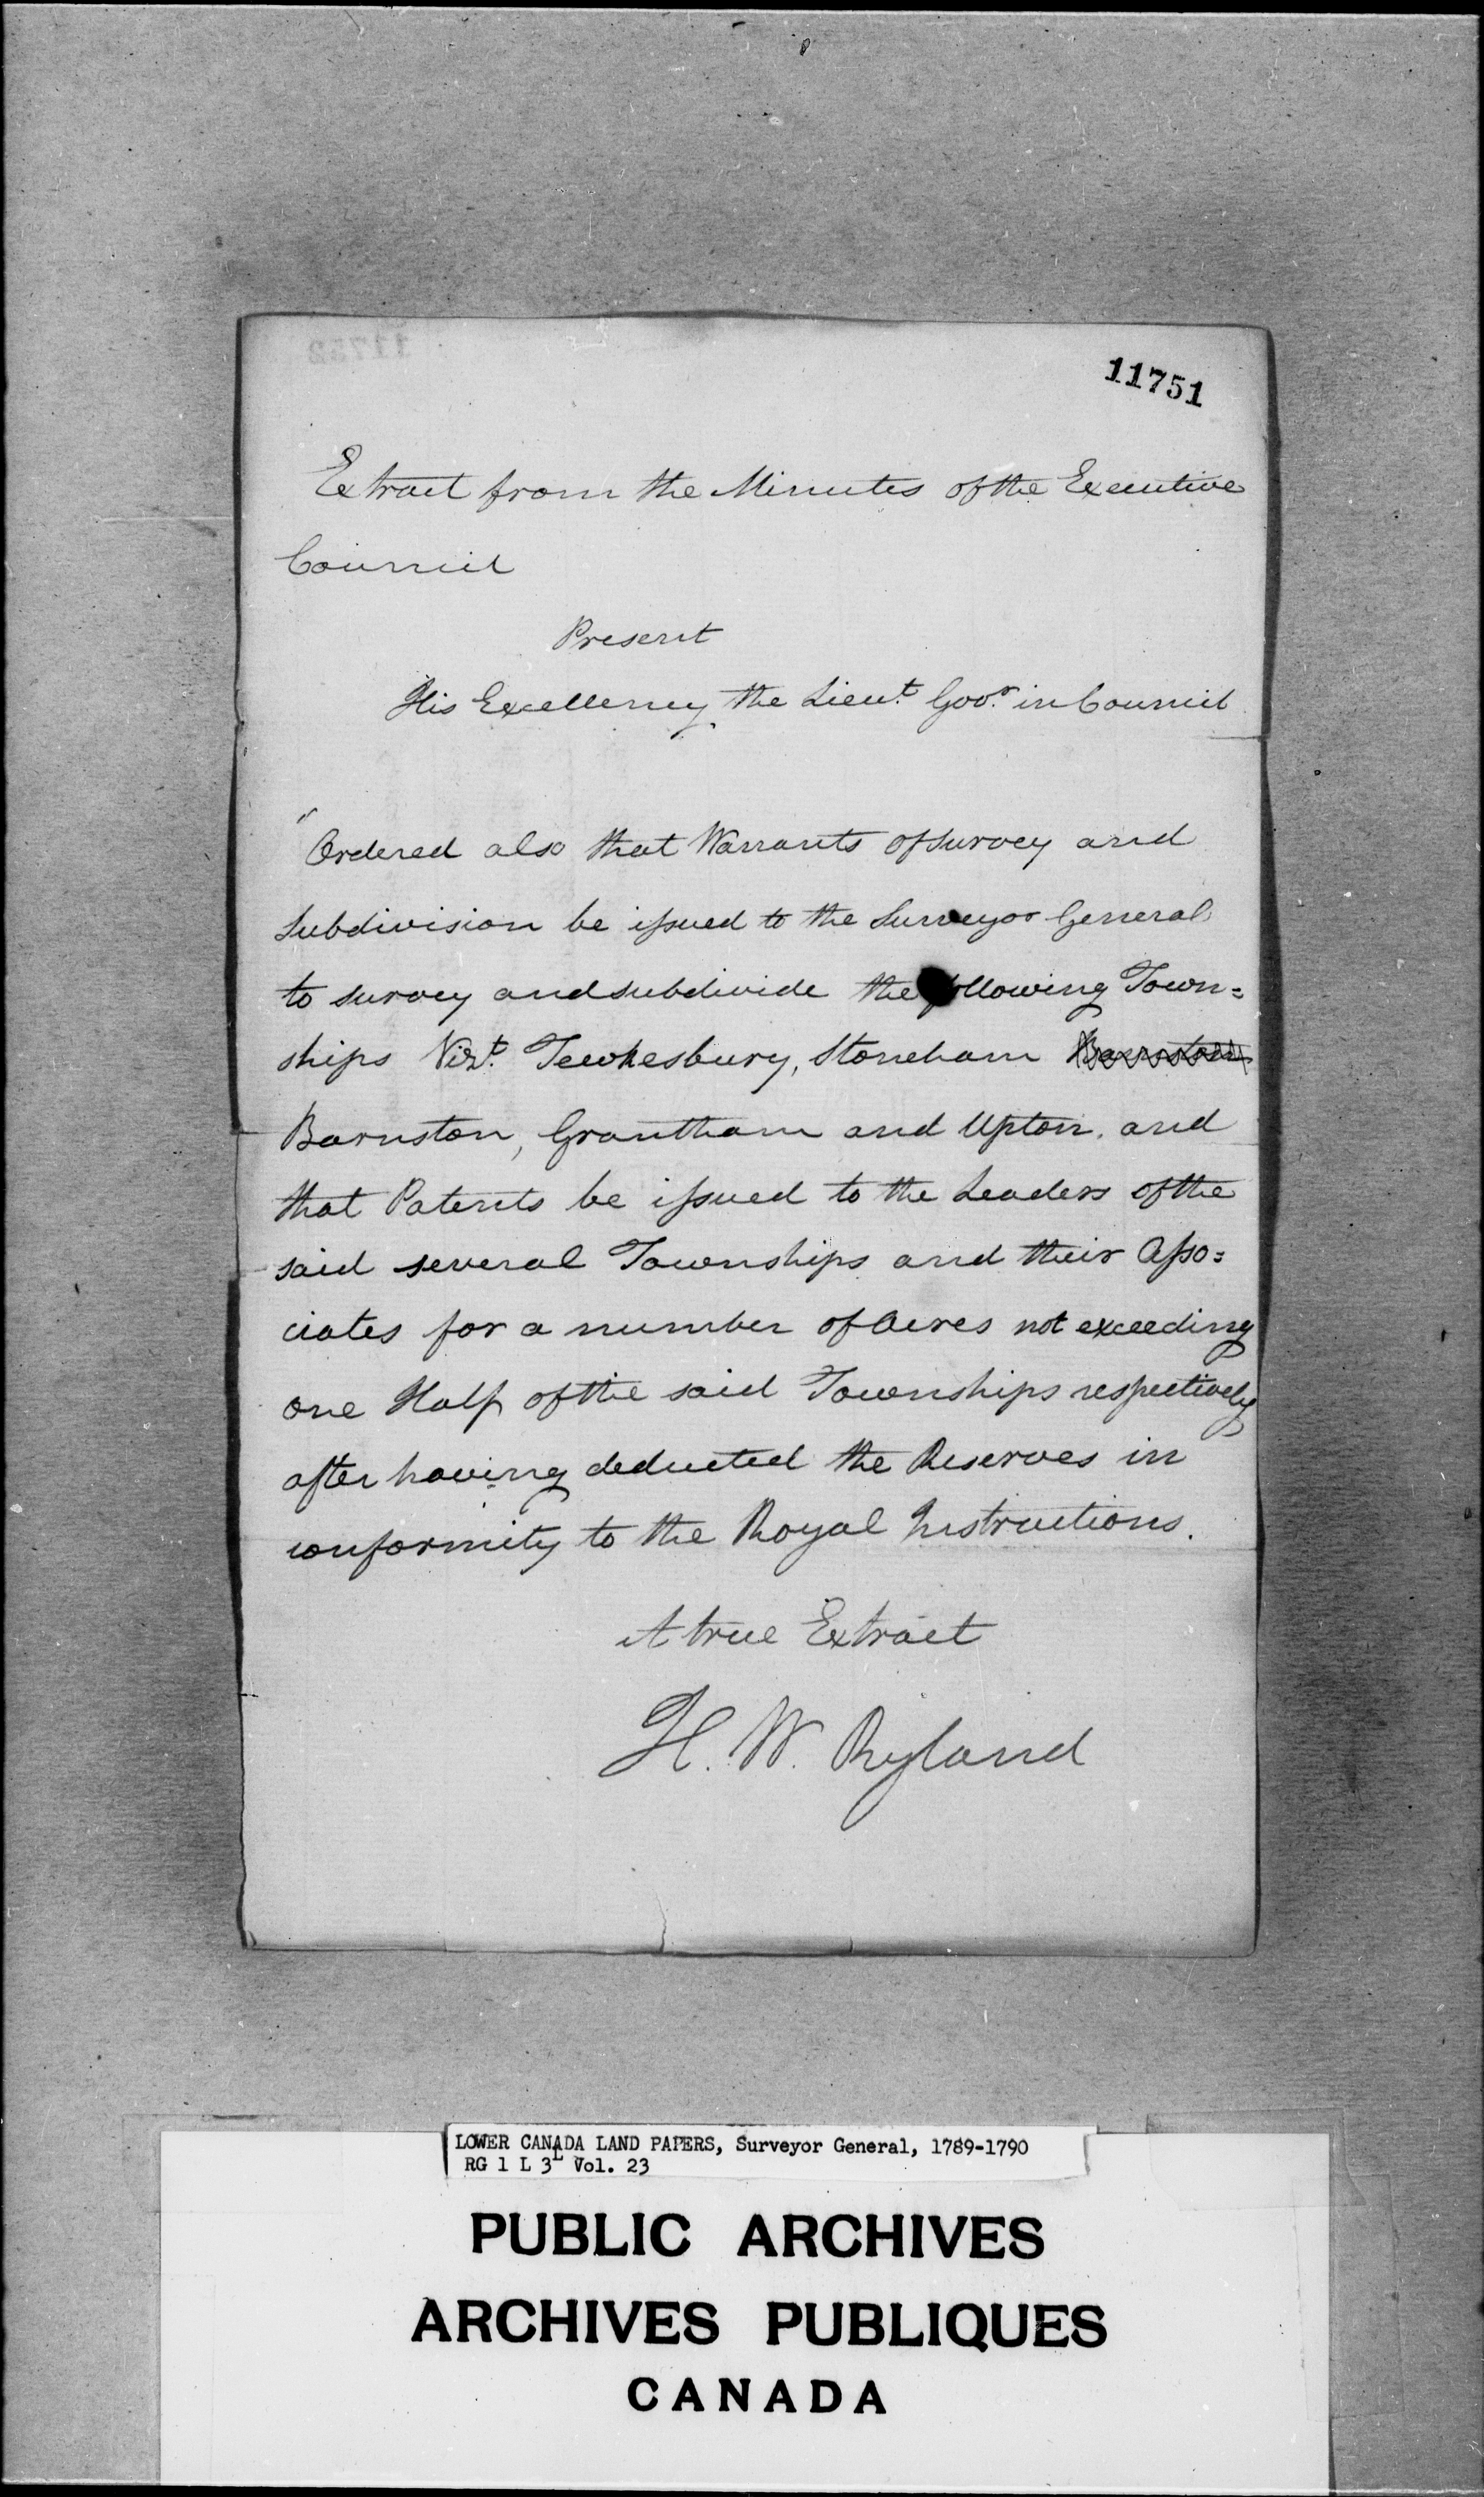 11751
Extract from the Minutes of the Executive
Council
Present
His Excellency the Lieut. Govr. in Council
"Ordered also that Warrants of Survey and
Subdivision be issued to the Surveyor General
to survey and subdivide the following Town=
ships Vizt. Tewkesbury, Stoneham
Barnston, Grantham and Upton. and
that Patents be issued to the Leaders of the
said several Townships and their Asso=
ciates for a number of Acres not exceeding
one Half of the said Townships respectively
after having deducted the Reserves in
conformity to the Royal Instructions.
A true Extract
H. W. Ryland
LOWER CANADA LAND PAPERS, Surveyor General, 1789-1790
RG 1 L 3L Vol. 23
PUBLIC ARCHIVES
ARCHIVES PUBLIQUES
CANADA